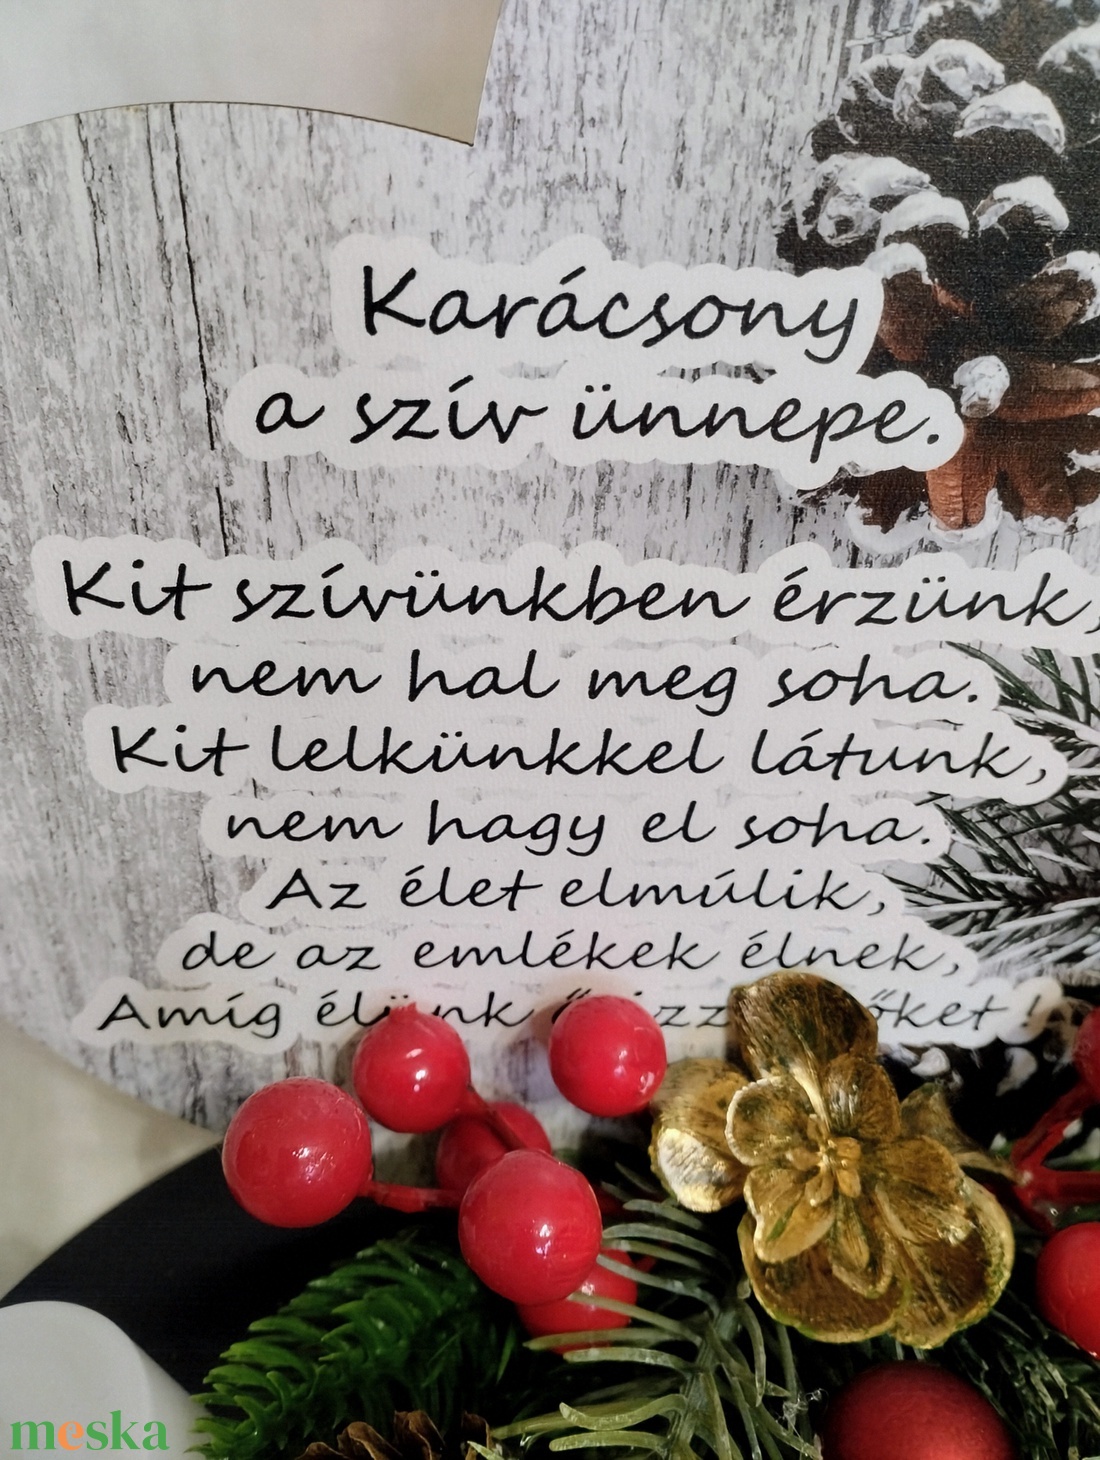 Karácsony
a szív ünnepe.
Kit szívünkben érzünk,
nem hal meg soha.
Kit lelkünkkel látunk,
nem hagy el soha.
Az élet elmúlik,
de az emlékek élnek,
Amíg élünk őket!
meska